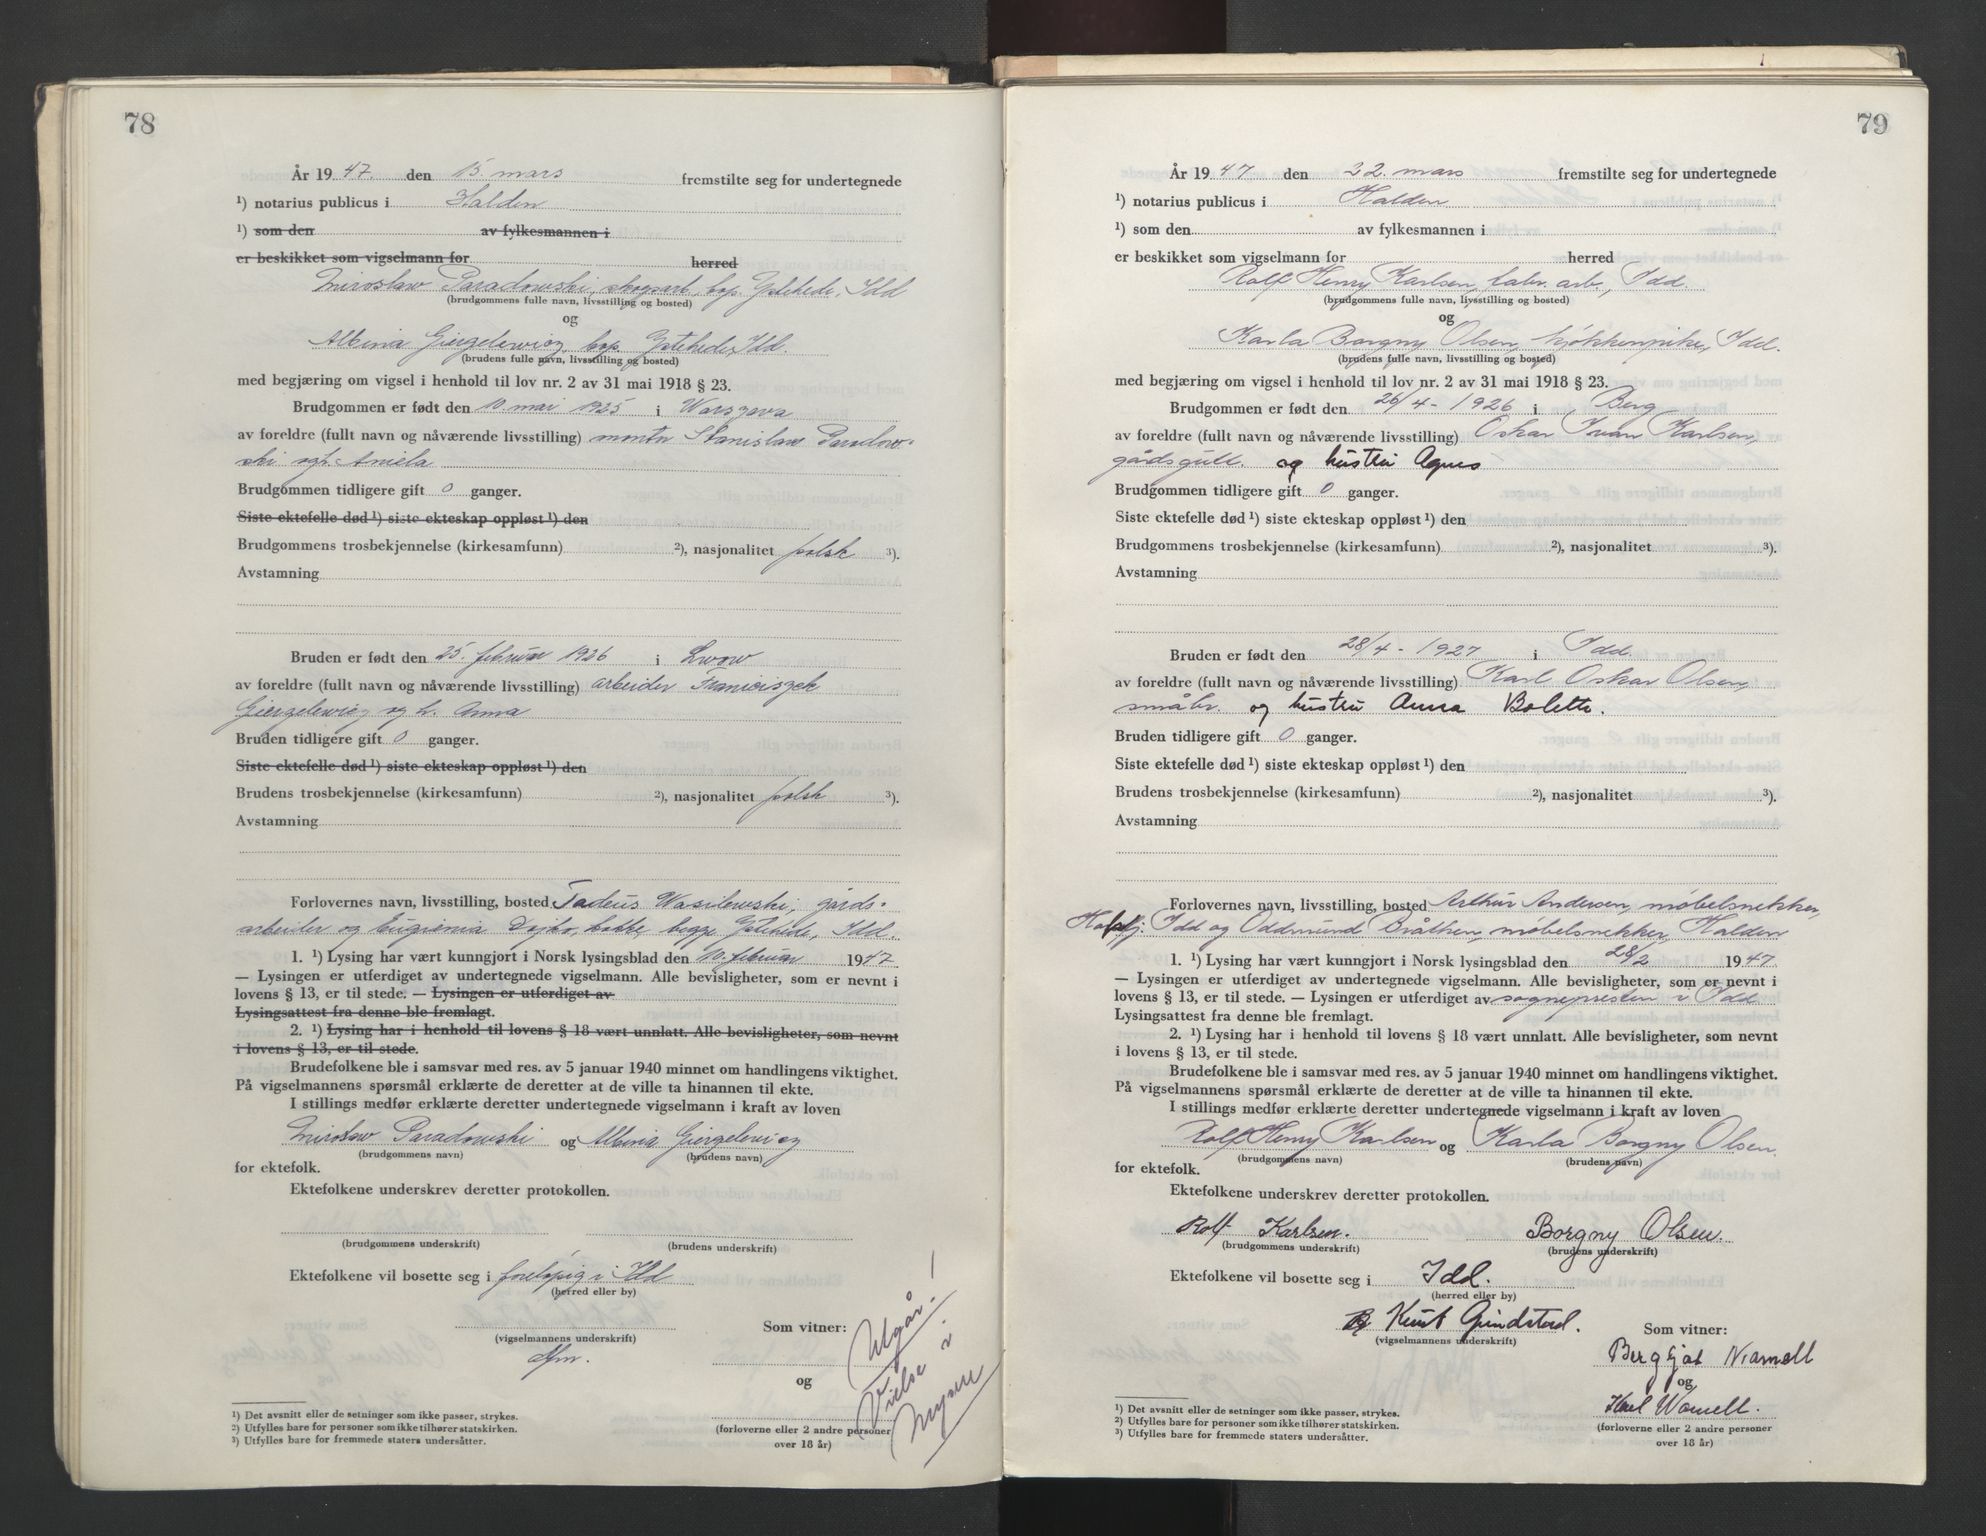 78
År 1947. den 15. mars fremstilte seg for undertegnede
¹) notarius publicus i Halden
¹) som den av fylkesmannen i
er beskikket som vigselmann for herred
Miroslaw Paradowski, skogsarb., bop. Ystehede, Idd
(brudgommens fulle navn, livsstilling og bosted)
og
Albina Giergelewicz, bop. Ystehede, Idd.
(brudens fulle navn, livsstilling og bosted)
med begjæring om vigsel i henhold til lov nr. 2 av 31 mai 1918 § 23.
Brudgommen er født den 10. mai 1925 i Warszava
av foreldre (fullt navn og nåværende livsstilling) montør Stanislaw Paradow-
ski og h. Aniela
Brudgommen tidligere gift 0 ganger.
Siste ektefelle død ¹) siste ekteskap oppløst ¹) den
Brudgommens trosbekjennelse (kirkesamfunn) ²), nasjonalitet polsk ³).
Avstamning
Bruden er født den 25. februar 1926 i Lwow
av foreldre (fullt navn og nåværende livsstilling) arbeider Franciszek
Giergelewicz og h. Anna
Bruden tidligere gift 0 ganger.
Siste ektefelle død ¹) siste ekteskap oppløst ¹) den
Brudens trosbekjennelse (kirkesamfunn) ²), nasjonalitet polsk ³).
Avstamning
Forlovernes navn, livsstilling, bosted Tadeus Wasilewski, gårds-
arbeider og Eugienia Dojko, kokke, begge Ystehede, Idd.
1. ¹) Lysing har vært kunngjort i Norsk lysingsblad den 10. februar 1947.
— Lysingen er utferdiget av undertegnede vigselmann. Alle bevisligheter, som er nevnt i
lovens § 13, er til stede. — Lysingen er utferdiget av
Lysingsattest fra denne ble fremlagt.
2. ¹) Lysing har i henhold til lovens § 18 vært unnlatt. Alle bevisligheter, som nevnt
i lovens § 13, er til stede.
Brudefolkene ble i samsvar med res. av 5 januar 1940 minnet om handlingens viktighet.
På vigselmannens spørsmål erklærte de deretter at de ville ta hinannen til ekte.
I stillings medfør erklærte deretter undertegnede vigselmann i kraft av loven
Miroslaw Paradowski og Albina Giergelewicz
(brudgommens navn) (brudens navn)
for ektefolk.
Ektefolkene underskrev deretter protokollen.
(brudgommens underskrift) (brudens underskrift)
Ektefolkene vil bosette seg i foreløpig i Idd
(herred eller by)
(vigselmannens underskrift)
Som vitner:
og
(forloverne eller 2 andre personer
over 18 år)
Utgår!
Vielse i
Mysen
¹) Det avsnitt eller de setninger som ikke passer, strykes.
²) Utfylles bare for personer som ikke tilhører statskirken.
³) Utfylles bare for fremmede staters undersåtter.
79
År 1947 den 22. mars fremstilte seg for undertegnede
¹) notarius publicus i Halden
¹) som den av fylkesmannen i
er beskikket som vigselmann for herred
Rolf Henry Karlsen, fabr. arb., Idd.
(brudgommens fulle navn, livsstilling og bosted)
og
Karla Borgny Olsen, kjøkkenpike, Idd.
(brudens fulle navn, livsstilling og bosted)
med begjæring om vigsel i henhold til lov nr. 2 av 31 mai 1918 § 23.
Brudgommen er født den 26/4 - 1926 i Berg
av foreldre (fullt navn og nåværende livsstilling) Oskar Ivan Karlsen,
gårdsgutt. og hustru Agnes
Brudgommen tidligere gift 0 ganger.
Siste ektefelle død ¹) siste ekteskap oppløst ¹) den
Brudgommens trosbekjennelse (kirkesamfunn) ²), nasjonalitet ³).
Avstamning
Bruden er født den 28/4 - 1927 i Idd.
av foreldre (fullt navn og nåværende livsstilling) Karl Oskar Olsen,
småbr. og hustru Anna Bolette.
Bruden tidligere gift 0 ganger.
Siste ektefelle død ¹) siste ekteskap oppløst ¹) den
Brudens trosbekjennelse (kirkesamfunn) ²), nasjonalitet ³).
Avstamning
Forlovernes navn, livsstilling, bosted Arthur Andersen, møbelsnekker,
Idd og Oddmund Bråthen, møbelsnekker, Halden
1. ¹) Lysing har vært kunngjort i Norsk lysingsblad den 28/2 1947.
— Lysingen er utferdiget av undertegnede vigselmann. Alle bevisligheter, som er nevnt i
lovens § 13, er til stede. — Lysingen er utferdiget av sognepresten i Idd
Lysingsattest fra denne ble fremlagt.
2. ¹) Lysing har i henhold til lovens § 18 vært unnlatt. Alle bevisligheter, som nevnt
i lovens § 13, er til stede.
Brudefolkene ble i samsvar med res. av 5 januar 1940 minnet om handlingens viktighet.
På vigselmannens spørsmål erklærte de deretter at de ville ta hinannen til ekte.
I stillings medfør erklærte deretter undertegnede vigselmann i kraft av loven
Rolf Henry Karlsen og Karla Borgny Olsen.
(brudgommens navn) (brudens navn)
for ektefolk.
Ektefolkene underskrev deretter protokollen.
Rolf Karlsen. Borgny Olsen.
(brudgommens underskrift) (brudens underskrift)
Ektefolkene vil bosette seg i Idd.
(herred eller by)
Knut Grindstad.
(vigselmannens underskrift)
Som vitner:
og
Karl
(forloverne eller 2 andre personer
over 18 år)
¹) Det avsnitt eller de setninger som ikke passer, strykes.
²) Utfylles bare for personer som ikke tilhører statskirken.
³) Utfylles bare for fremmede staters undersåtter.